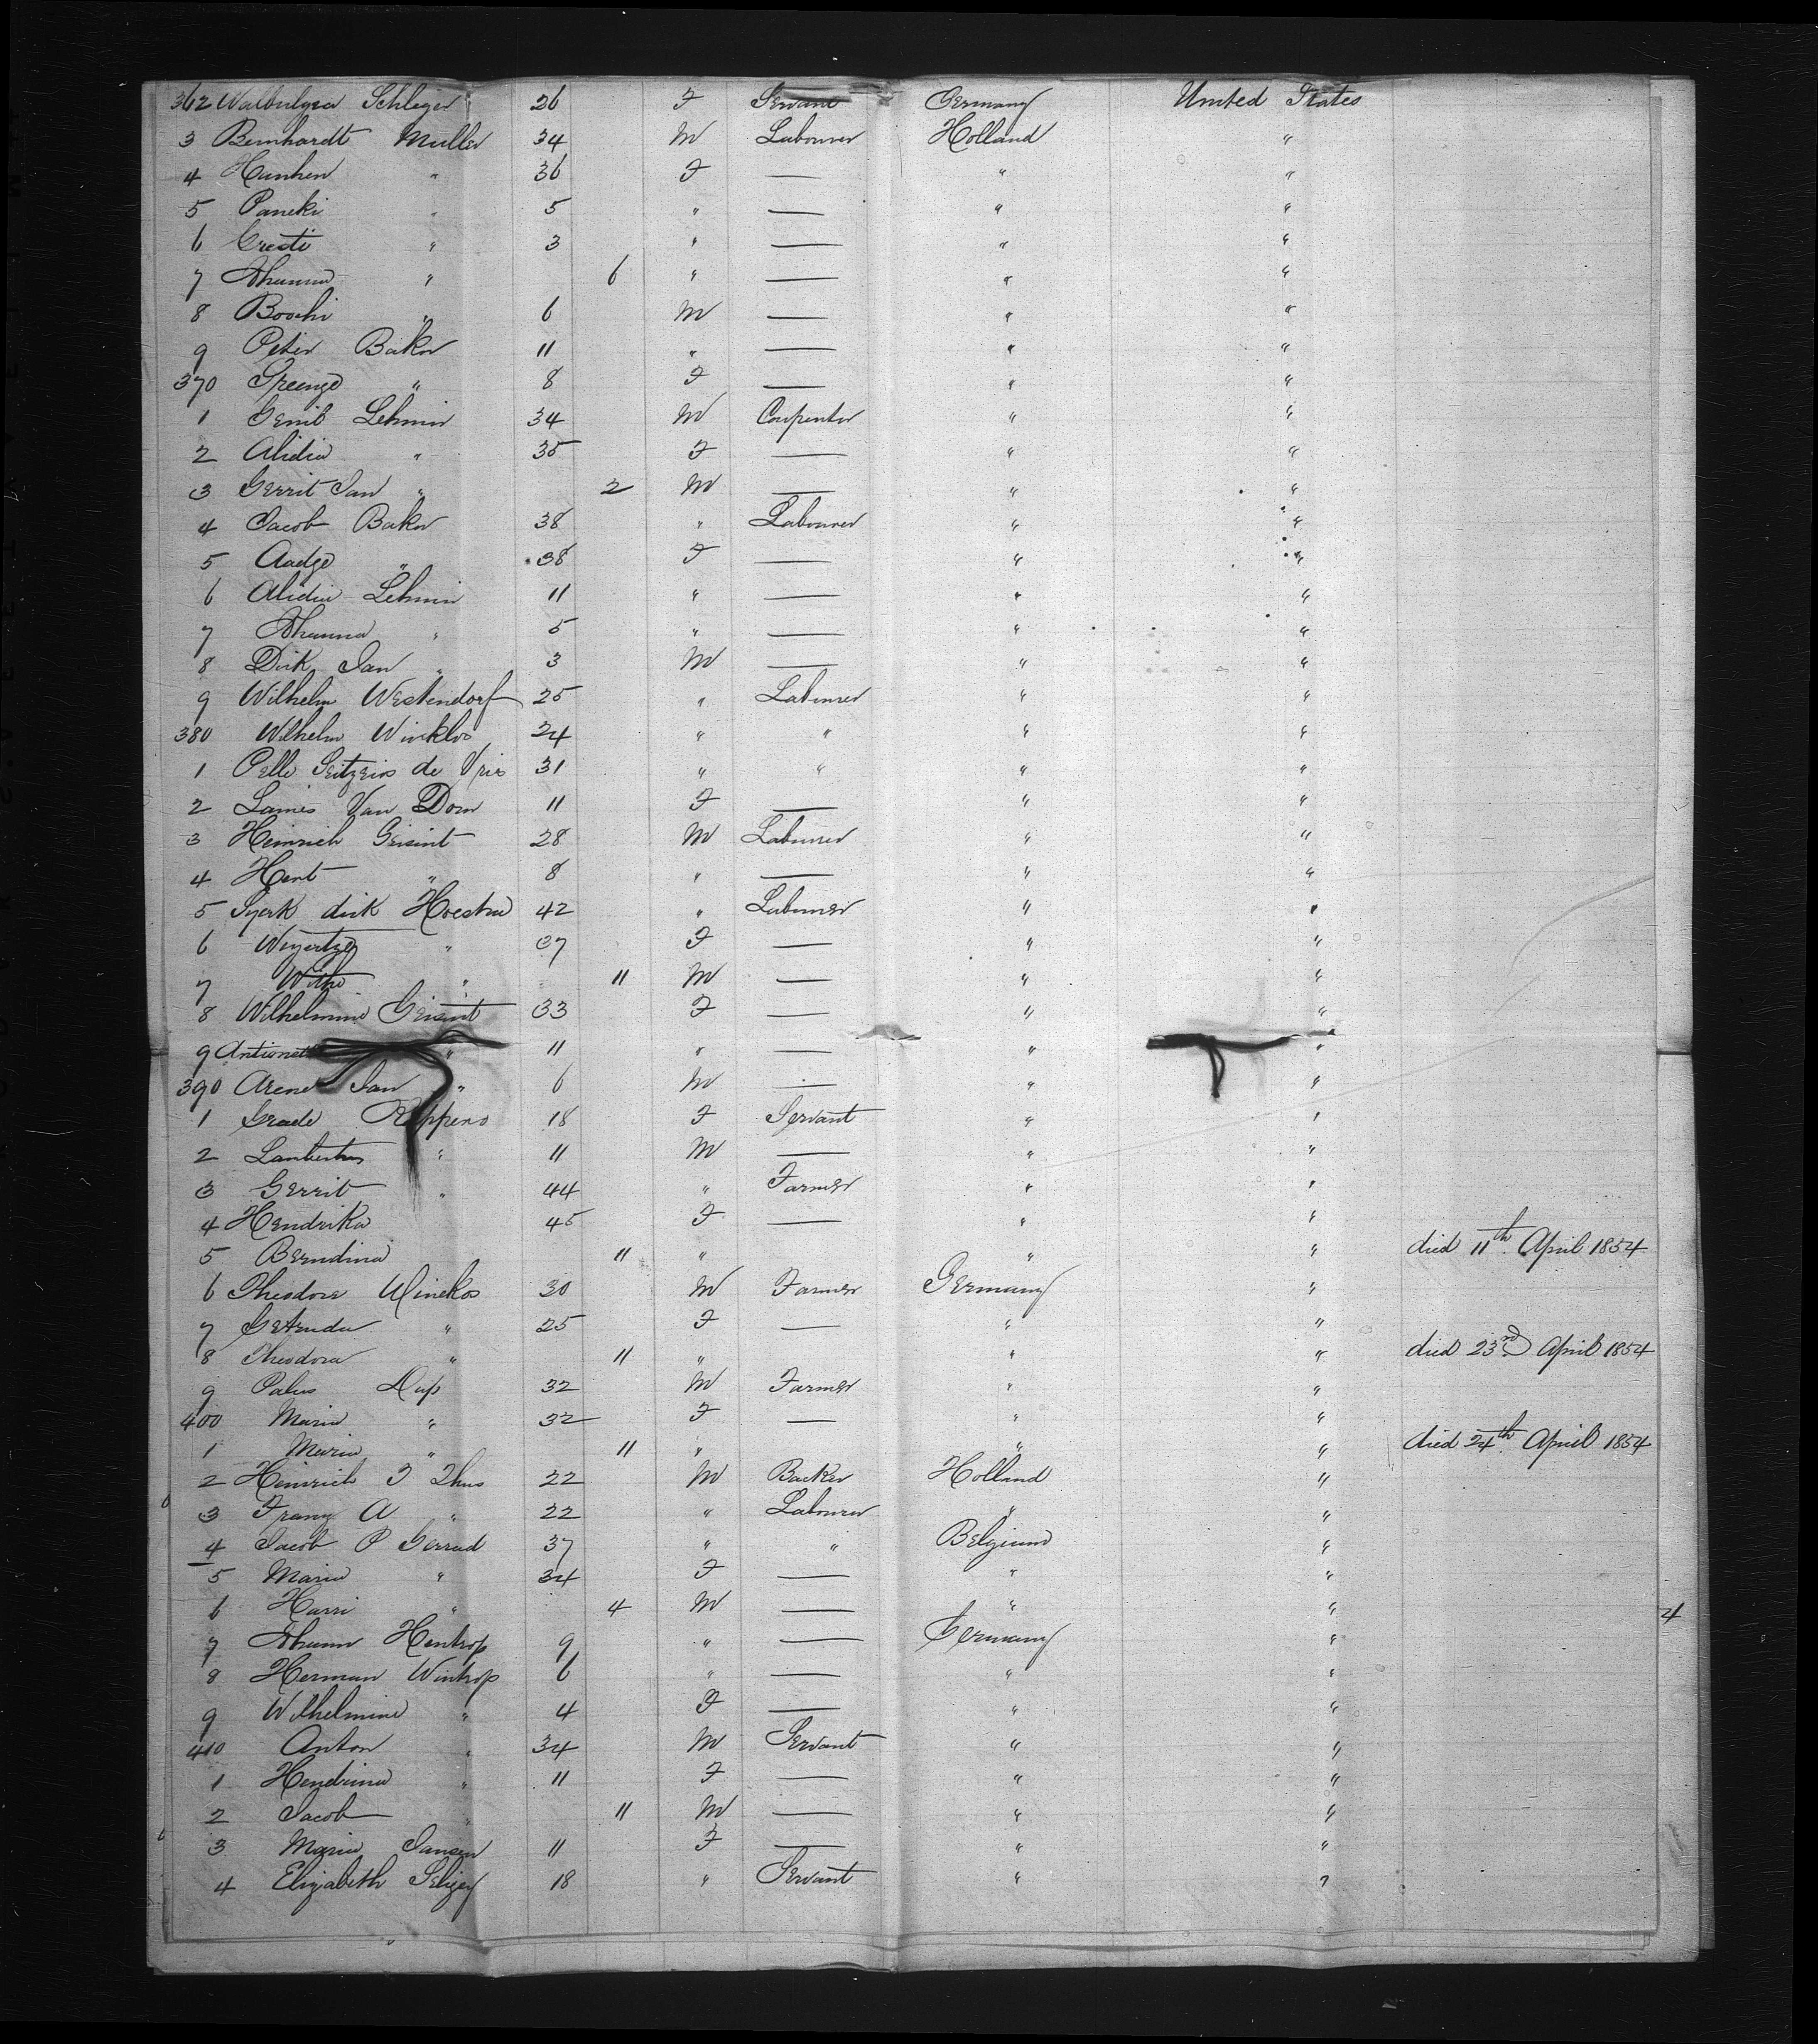 362 Walbulgea Schleger 26 F Servant Germany United States
3 Bernhardt Muller 34 M Labourer Holland "
4 Hanhen " 36 F — " "
5 Paneki " 5 " — " "
6 Cresti " 3 " — " "
7 Johanna " 6 " — " "
8 Boochi " 6 M — " "
9 Peter Baker 11 " — " "
370 Greenge " 8 F — " "
1 Gerrit Lehmin 34 M Carpenter " "
2 Alidia " 35 F — " "
3 Gerrit Jan " 2 M — " "
4 Jacob Baker 38 " Labourer " "
5 Aadge " 38 F — " "
6 Alidia Lehmin 11 " — " "
7 Johanna " 5 " — " "
8 Dirk Jan " 3 M — " "
9 Wilhelm Westendorf 25 " Labourer " "
380 Wilhelm Winklos 24 " " " "
1 Pelle Seitzeis de Vris 31 " " " "
2 Lamis Van Dorn 11 F — " "
3 Heinrich Geisint 28 M Labourer " "
4 Hent " 8 " — " "
5 Syerk dirk Hoestra 42 " Labourer " "
6 Weyertze " 37 F — " "
7 Withe " 11 M — " "
8 Wilhelmine Geisint 33 F — " "
9 Antionett " 11 " — " "
390 Arend Jan " 6 M — " "
1 Grade Reppens 18 F Servant " "
2 Lambertus " 11 M — " "
3 Gerrit " 44 " Farmer " "
4 Hendrika 45 F — " "
5 Berndina 11 " " " died 11th April 1854
6 Theodore Winekos 30 M Farmer Germany "
7 Getruda " 25 F — " "
8 Theodora " 11 " " " died 23rd April 1854
9 Palus Dup 32 M Farmer " "
400 Maria " 32 F — " "
1 Maria " 11 " " " died 24th April 1854
2 Heinrich T Thus 22 M Backer Holland "
3 Franz A " 22 " Labourer " "
4 Jacob P Gerrad 37 " " Belgium "
5 Maria " 34 F — " "
6 Harri " 4 M — " " 4
7 Johann Hentrop 9 " — Germany "
8 Herman Wintrop 6 " — " "
9 Wilhelmine " 4 F — " "
410 Anton " 34 M Servant " "
1 Hendrina " 11 F — " "
2 Jacob " 11 M — " "
3 Maria Jansen 11 F — " "
4 Elizabeth Seliger 18 " Servant " "